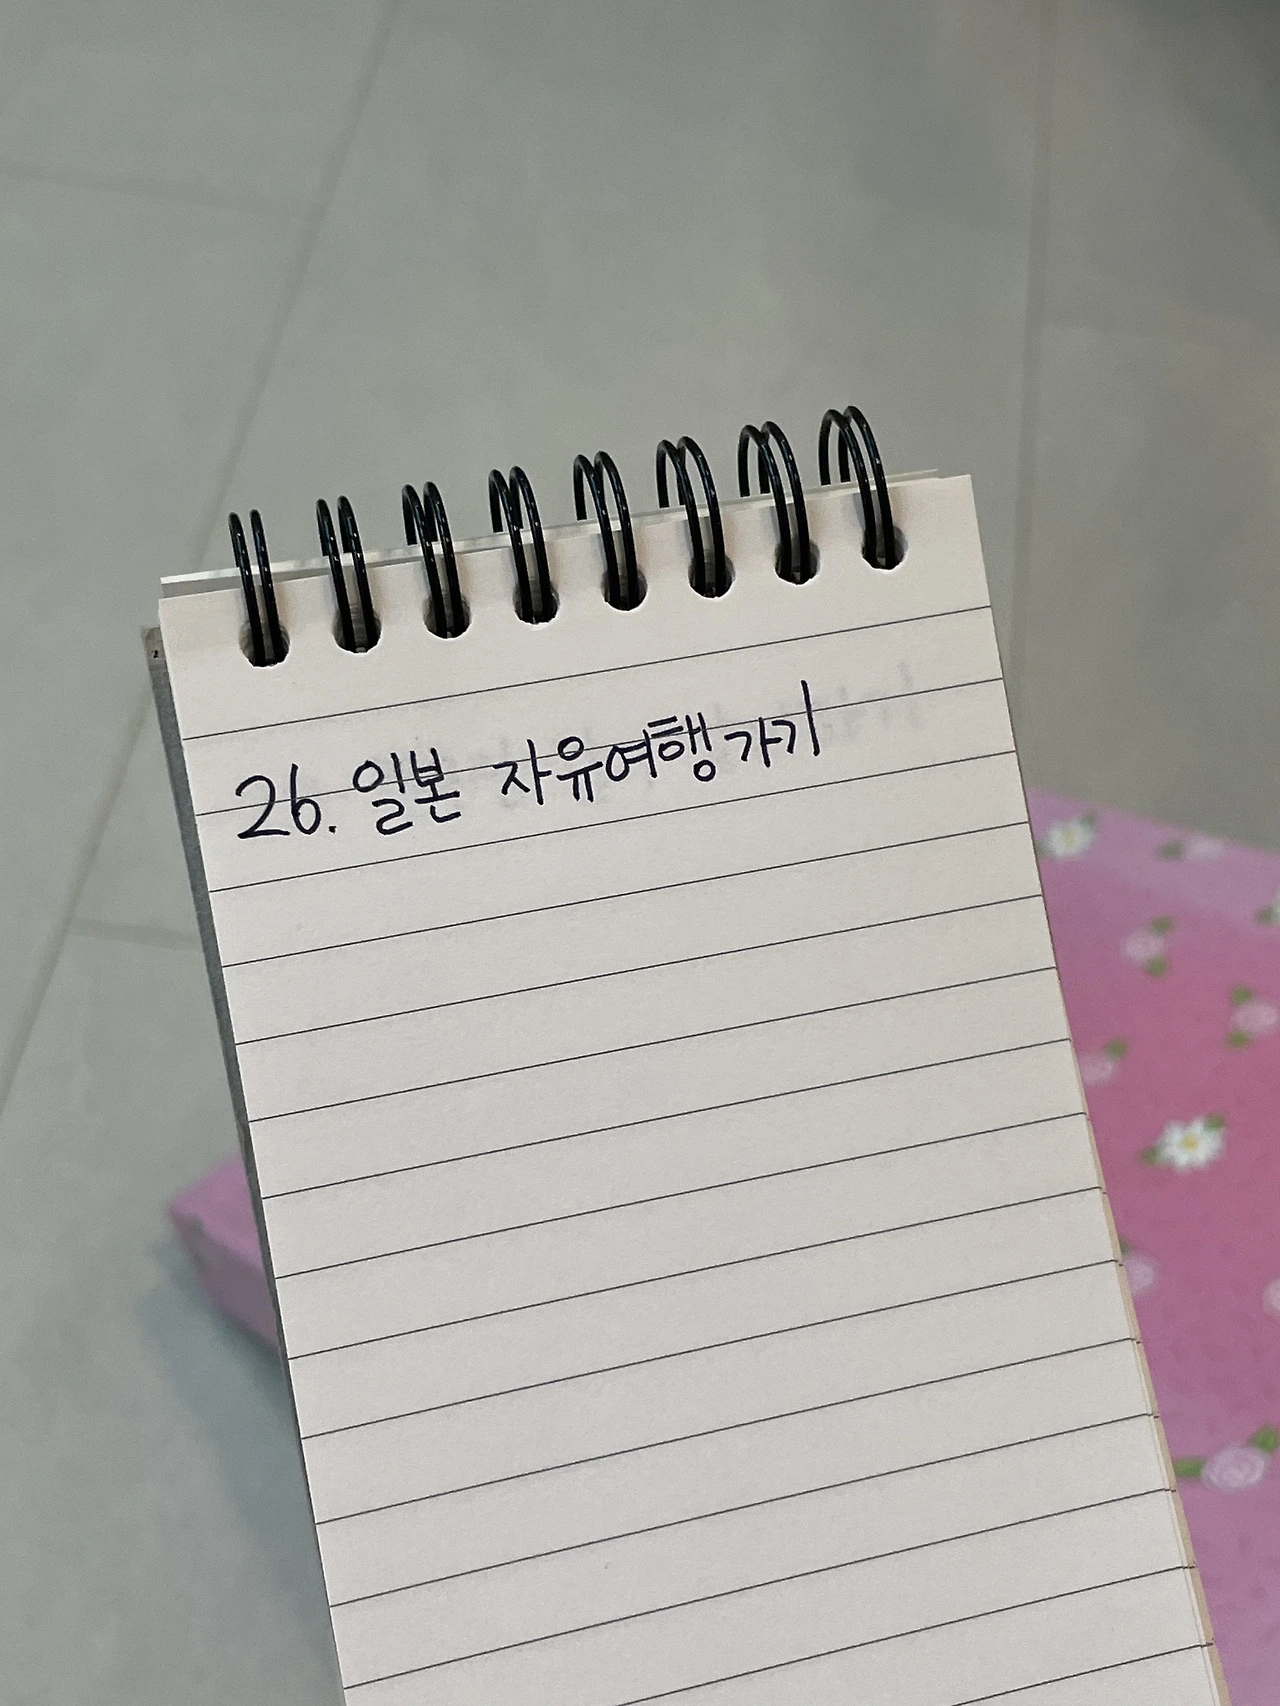 26. 일본 자유여행 가기